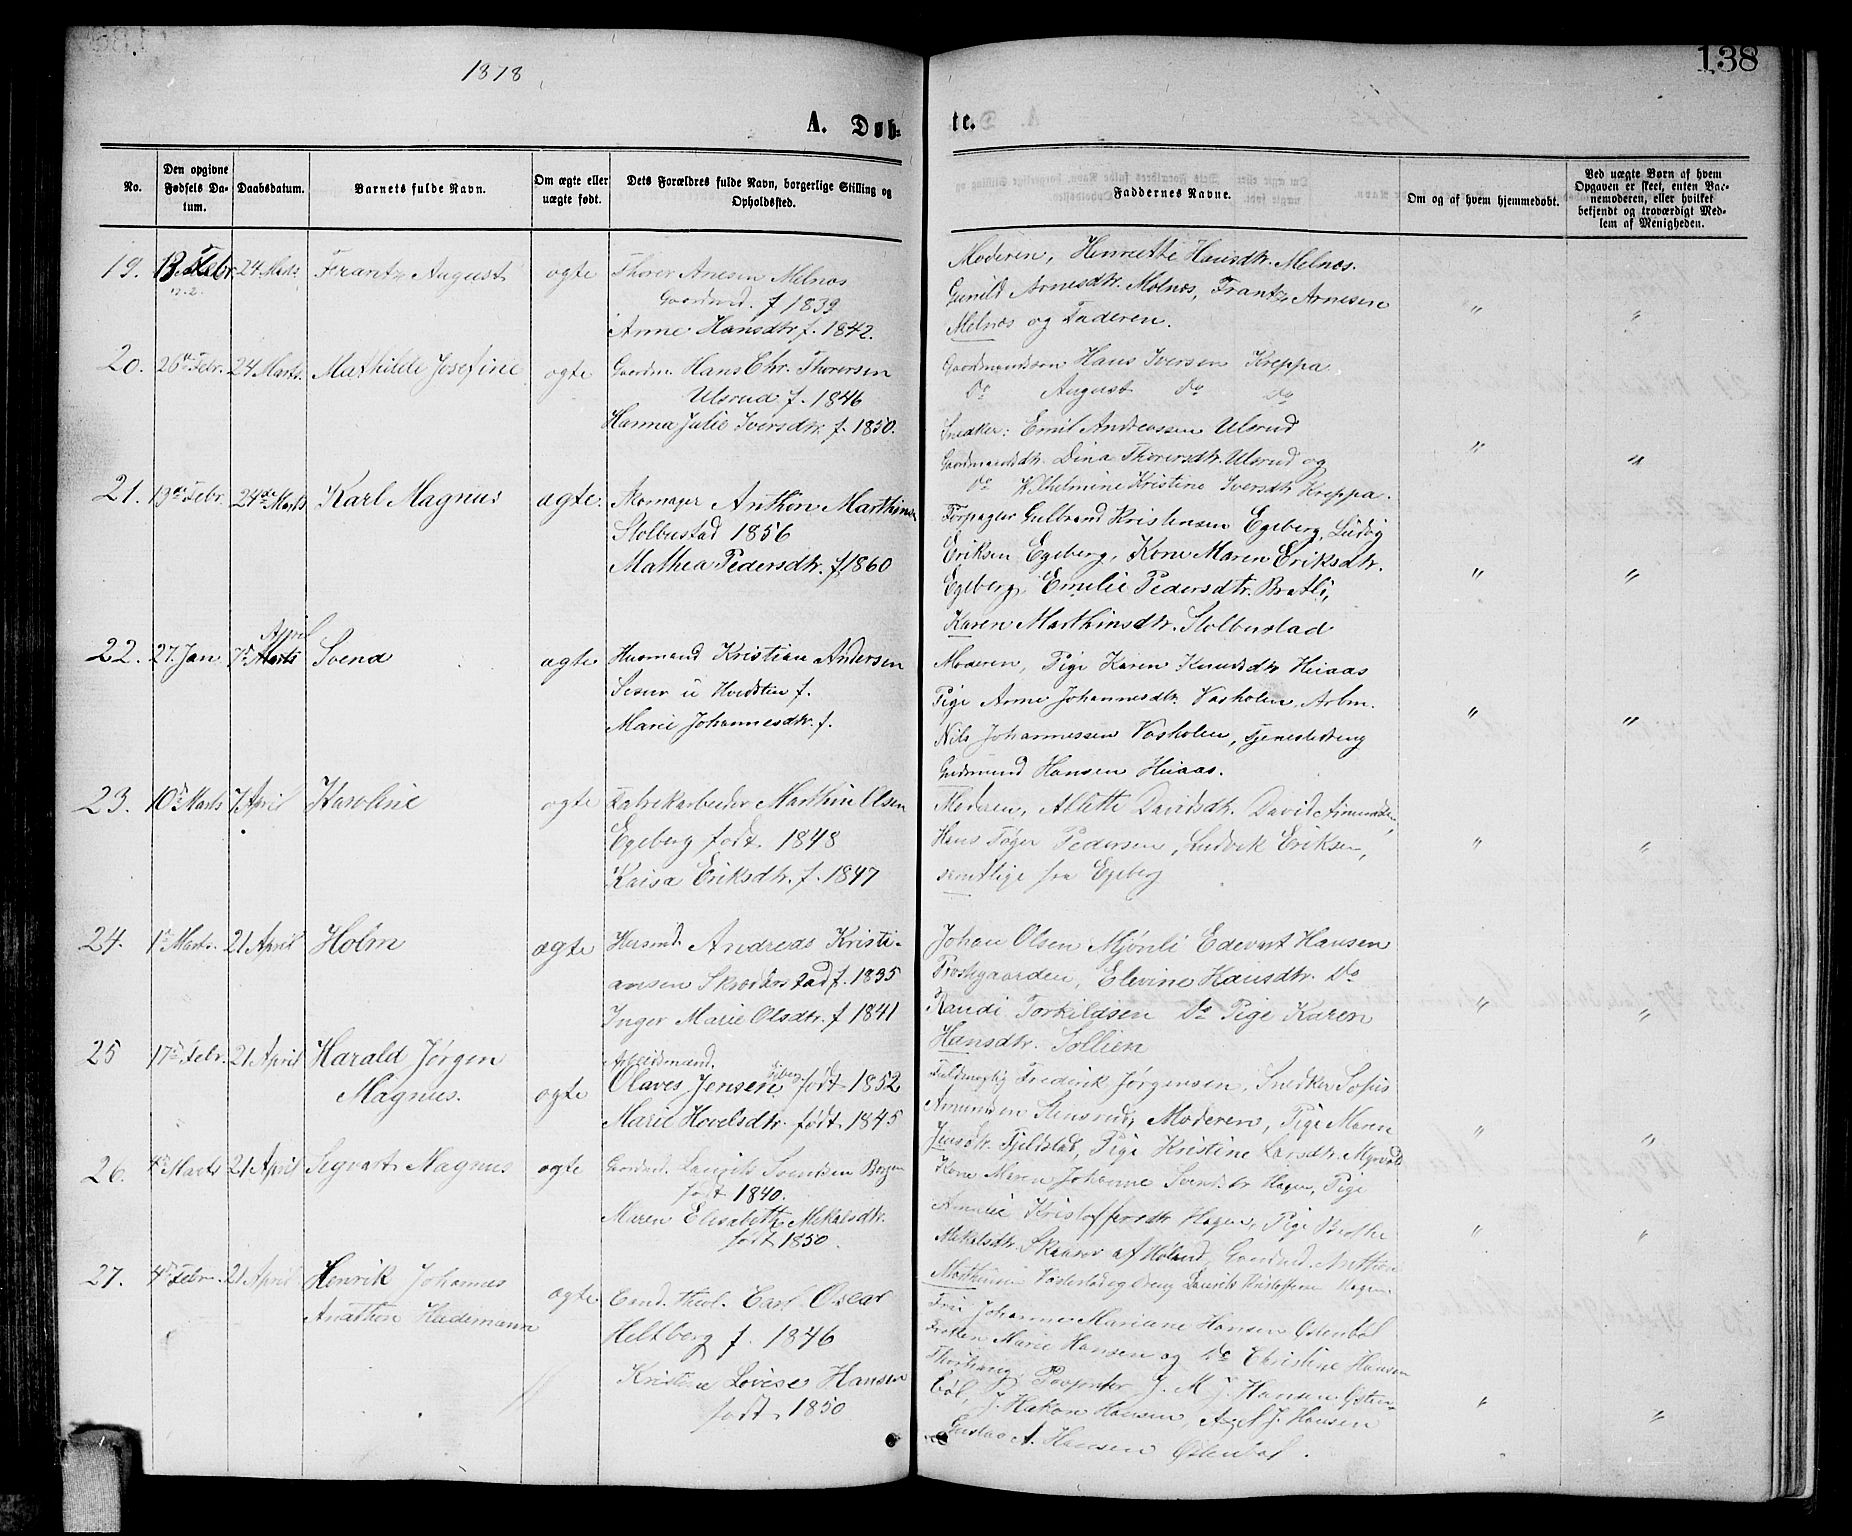 138
1878
A. Døb-
te.
No.
Den opgivne Fødsels Datum.
Daabsdatum.
Barnets fulde Navn.
Om ægte eller uægte født.
Dets Forældres fulde Navn, borgerlige Stilling og Opholdssted.
Faddernes Navne.
Om og af hvem hjemmedøbt.
Ved uægte Børn af hvem Opgaven er skeet, enten Barnemoderen, eller hvilket bekjendt og troværdigt Medlem af Menigheden.
19. 13. Febr 24 Marts Frantz August ægte
Thorer Anesen Melnæs
Gaardmd. f 1839
Anne Hansdtr f. 1842.
Moderen, Henriette Hansdtr. Melnæs.
Gunild Arnesdtr. Melnæs, Frantz Arnesen
Melnæs og Faderen.
" "
20. 26de Febr. 24 Marts. Mathilde Josefine ægte
Gaardm. Hans Chr. Thorersen
Ulsrud f. 1846
Hanna Julie Iversdtr. f. 1850.
Gaardmandssøn Hans Iversen Kreppa
Do August do do
Snedker: Emil Andreassen Ulsrud
Gaardmandsdtr. Dina Thorersdtr. Ulsrud og
do Wilhelmine Kristine Iversdtr Kreppa.
" "
21. 19de Febr. 24de Marts Karl Magnus ægte.
Skomager Anthon Marthinsen
Stolbustad 1856
Mathea Pedersdtr. f 1860
Forpagter Gulbrand Kristensen Egeberg, Ludvig
Eriksen Egeberg, Kone Maren Eriksdtr.
Egeberg, Emelie Pedersdtr. Bratli,
Karen Marthinsdtr. Stolbustad
" "
22. 27. Jan 7de April Svend ægte
Husmand Kristian Andersen
u Hvidstien f.
Marie Johannesdtr. f.
Moderen, Pige Karen Knudsdtr Heiaas
Pige Anne Johannesdtr. Vasholen, Arbm.
Nils Johannessen Vasholen, tjenestedreng
Gudmund Hansen Heiaas.
" "
23. 10de Marts 7. April Karoline ægte
Fabrikarbeider Marthin Olsen
Egeberg født 1848
Kaisa Eriksdtr. f. 1847
Moderen, Alette Davidsdtr. David
Hans Tøger Pedersen, Ludvik Eriksen,
samtlige fra Egeberg
" "
24. 1ste Marts. 21 April Holm ægte
Husmd. Andreas Kristi-
ansen Skrøderstad f. 1835
Inger Marie Olsdtr. f 1841
Johan Olsen Mjønli Edevart Hansen
Prestgaarden, Elevine Hansdtr. Do
Randi Torkildsen Do Pige Karen
Hansdtr. Sollien
" "
25 17de Febr. 21 April Harald Jørgen
Magnus. ægte
Arbeidsmand.
Olaves Jensen født 1852
Marie Hovelsdtr. født 1845
Frederik Jørgensen, Snedker Sofus
Amundsen Stensrud, Moderen, Pige Maren
Jensdtr. Fjeldstad, Pige Kristine Larsdtr. Myrvold
" "
26. 4de Marts 21 April Segvart Magnus ægte
Gaardmd. Lauritz Svendsen Borgen
født 1840.
Maren Elisabeth Mikalsdtr.
født 1850.
Kone Maren Johanne Svendsdtr Hagen, Pige
Amalie Kristoffersdtr Hagen, Pige Berthe
Mikalsdtr. Skaarer af Høland, Gaardmd. Anthon
Marthinsen Vasterstad og Dreng Laurits Kristoffersen Hagen.
" "
27. 4de Febr. 21 April Henrik Johannes
Anathon Heidemann ægte
Cand. theol. Carl Oscar
Heltberg f. 1846
Kristine Lovise Hansen
født 1850
Frue Johanne Mariane Hansen Østenbøl
Frøken Marie Hansen og Do Christine Hansen
J. M. J. Hansen Østen-
bøl, J. Hakon Hansen, Axel J. Hansen
Gustav A. Hansen Østenbøl.
" "